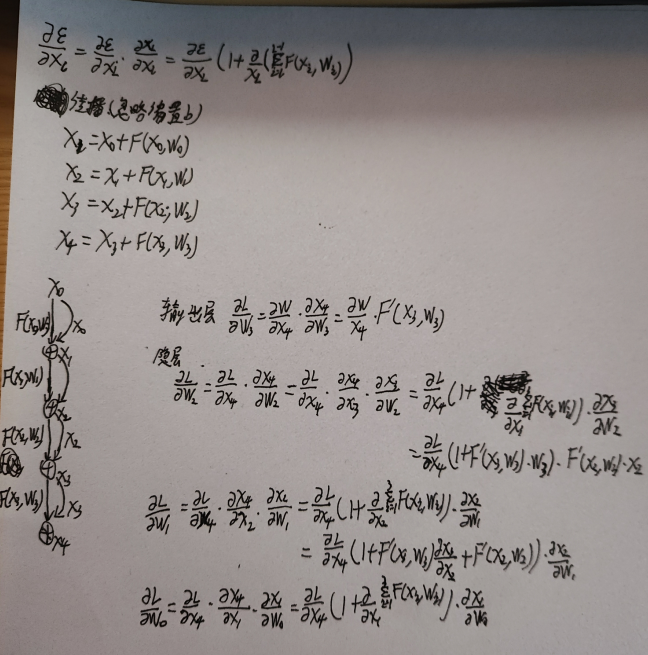 ∂ε/∂x_l = ∂ε/∂x_L · ∂x_L/∂x_l = ∂ε/∂x_L (1 + ∂/∂x_l (Σ F(x_i, W_i)))
传播(忽略偏置b)
X_1 = X_0 + F(X_0, W_0)
X_2 = X_1 + F(X_1, W_1)
X_3 = X_2 + F(X_2, W_2)
X_4 = X_3 + F(X_3, W_3)
X_0
F(X_0, W_0) X_0
⊕ X_1
F(X_1, W_1)
⊕ X_2
F(X_2, W_2) X_2
⊕ X_3
F(X_3, W_3) X_3
⊕ X_4
输出层 ∂L/∂W_3 = ∂W/∂X_4 · ∂X_4/∂W_3 = ∂W/X_4 · F'(X_3, W_3)
隐层
∂L/∂W_2 = ∂L/∂X_4 · ∂X_4/∂W_2 = ∂L/∂X_4 · ∂X_4/∂X_3 · ∂X_3/∂W_2 = ∂L/∂X_4 (1 + ∂/∂X_3 Σ F(X_i, W_i)) · ∂X_3/∂W_2
= ∂L/∂X_4 (1 + F'(X_3, W_3) · W_3) · F'(X_2, W_2) · X_2
∂L/∂W_1 = ∂L/∂X_4 · ∂X_4/∂X_2 · ∂X_2/∂W_1 = ∂L/∂X_4 (1 + ∂/∂X_2 Σ F(X_i, W_i)) · ∂X_2/∂W_1
= ∂L/∂X_4 (1 + F'(X_3, W_3) ∂X_3/∂X_2 + F'(X_2, W_2)) · ∂X_2/∂W_1
∂L/∂W_0 = ∂L/∂X_4 · ∂X_4/∂X_1 · ∂X_1/∂W_0 = ∂L/∂X_4 (1 + ∂/∂X_1 Σ F(X_i, W_i)) · ∂X_1/∂W_0